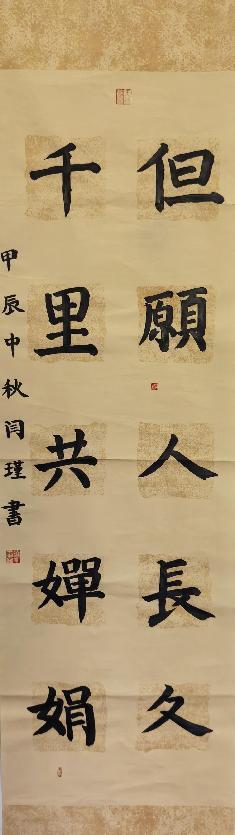 但願人長久
千里共嬋娟
甲辰中秋閆瑾書